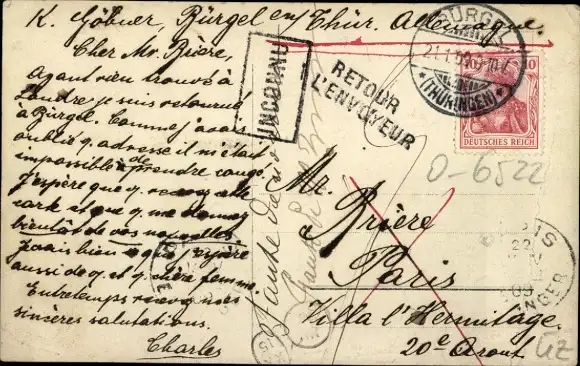 K. Göbner, Bürgel en Thür. Allemagne.
Cher Mr. Brière,
Ayant rien trouvé à
Londre je suis retourné
à Bürgel. Comme j'avais
oublié q. adresse il m'était
impossible de prendre congé.
J'espère que q. recevez cette
carte et que q. me donnez
bientôt de vos nouvelles.
Je vais bien e que j'espère
aussi de q. et q. chère femme.
Entretemps recevez mes
sincères salutations.
Charles
INCONNU
RETOUR
L'ENVOYEUR
BÜRGEL
(THÜRINGEN)
10
DEUTSCHES REICH
0-6522
Mr.
Brière
Paris
Villa l'Hermitage
20e Aront.
22
09
ETRANGER